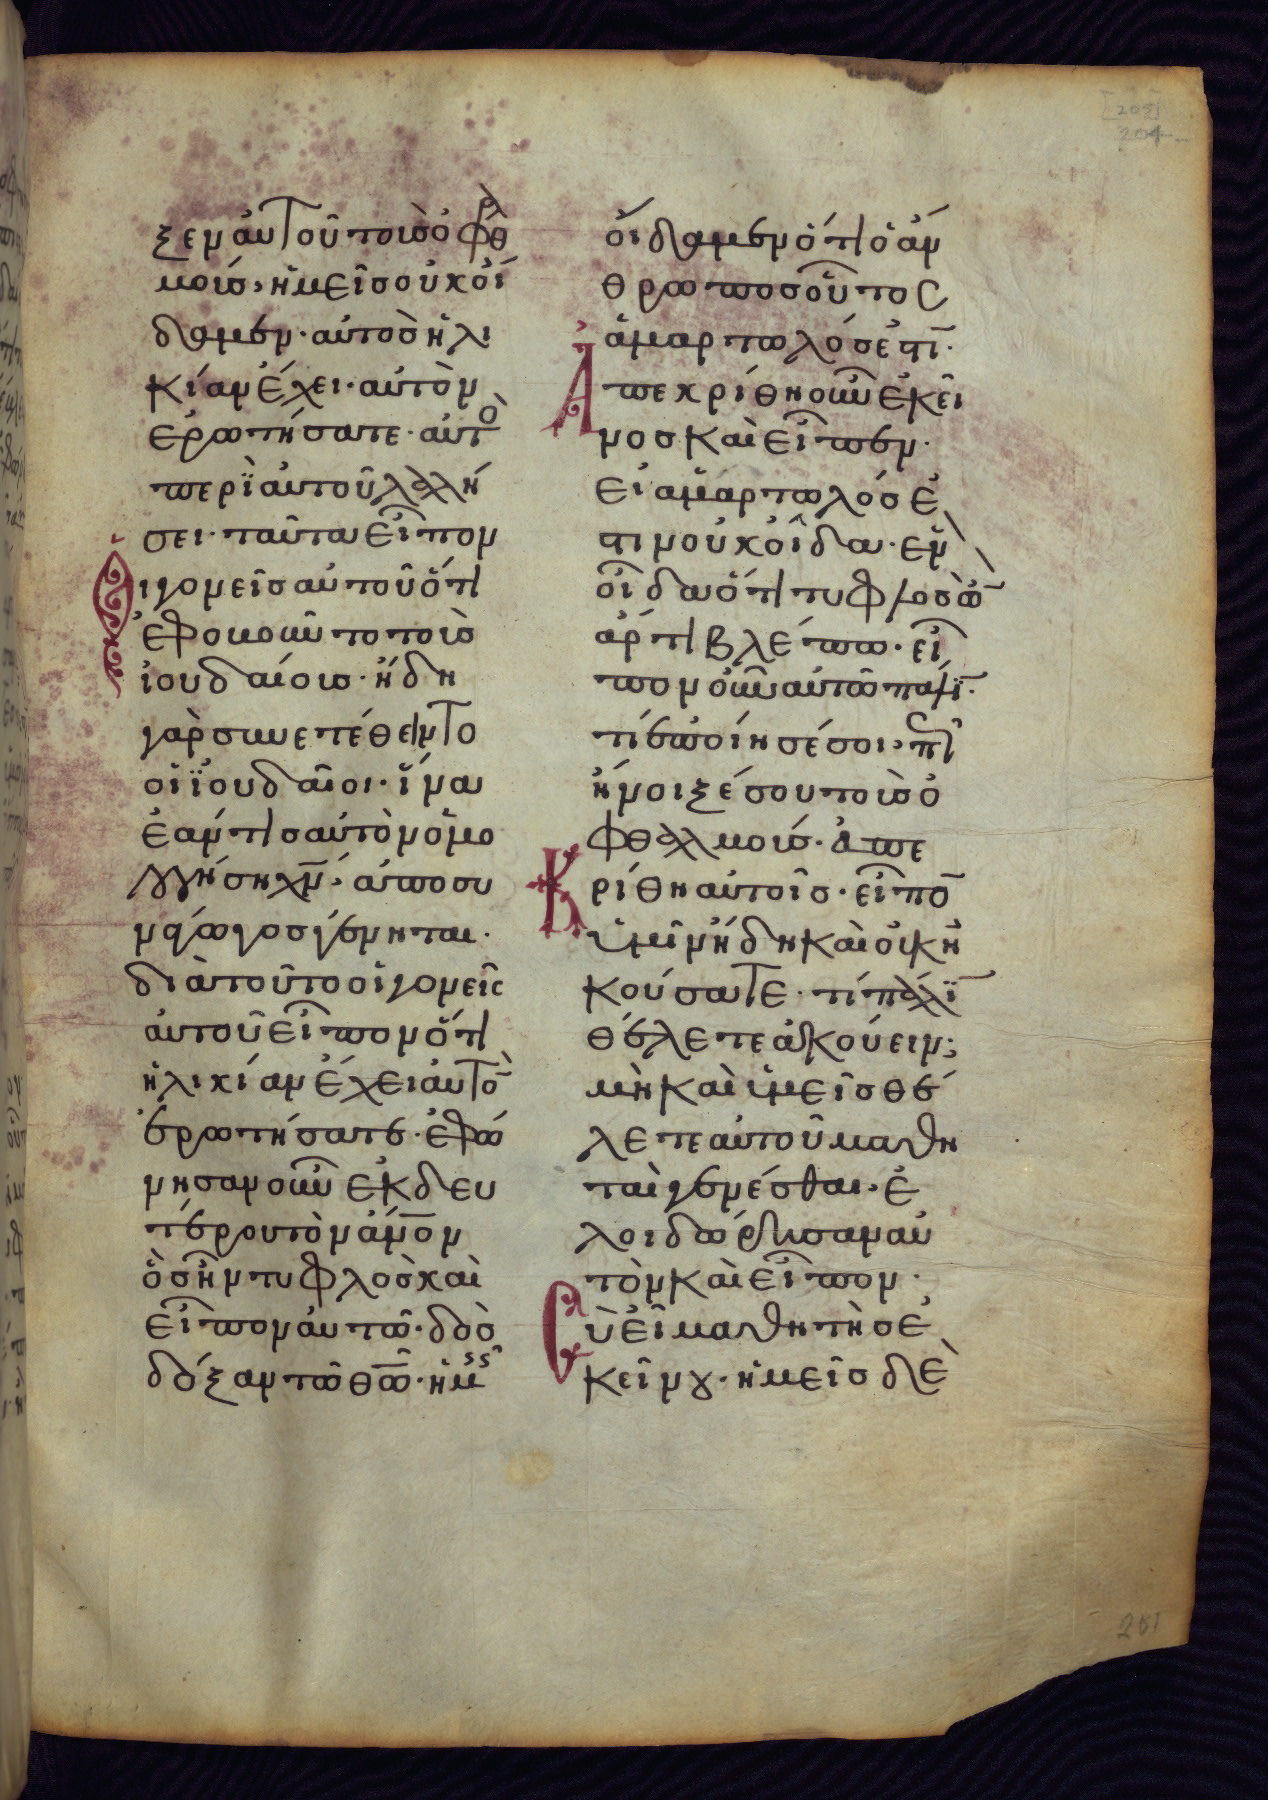 [205]
204
ξεν αυτοῦ τοὺς ὀφθαλ
μούς· ἡμεῖς οὐκ οἴ
δαμεν· αὐτὸς ἡλι
κίαν ἔχει· αὐτὸν
ἐρωτήσατε· αὐτὸ
περὶ αὐτοῦ λαλή
σει· ταῦτα εἶπον
οἱ γονεῖς αὐτοῦ ὅτι
ἐφοβοῦντο τοὺς
ἰουδαίους· ἤδη
γὰρ συνετέθειντο
οἱ ἰουδαῖοι· ἵνα
ἐάν τις αὐτὸν ὁμο
λογήσῃ χν̅· ἀποσυ
νάγωγος γένηται·
διὰ τοῦτο οἱ γονεῖς
αὐτοῦ εἶπον ὅτι
ἡλικίαν ἔχει αὐτὸ̅
ἐρωτήσατε· ἐφώ
νησαν οὖν ἐκ δευ
τέρου τὸν αν̅ον
ὃς ἦν τυφλὸς καὶ
εἶπον αὐτῷ· δὸς
δόξαν τῷ θω̅· ἡμεῖς
οἴδαμεν ὅτι ὁ ἄν
θρωπος οὗτος
ἁμαρτωλός ἐστι̅·
Ἀπεκρίθη οὖν ἐκεῖ
νος καὶ εἶπεν·
εἰ ἁμαρτωλός ἐ
στιν οὐκ οἶδα· ἓν
οἶδα ὅτι τυφλὸς ὢ̅
ἄρτι βλέπω· εἶ
πον οὖν αὐτῷ πάλι̅·
τί ἐποίησέ σοι· πῶς
ἤνοιξέ σου τοὺς ὀ
φθαλμούς· ἀπε
κρίθη αὐτοῖς· εἶπο̅
ὑμῖν ἤδη καὶ οὐκ ἠ
κούσατε· τί πάλι̅
θέλετε ἀκούειν;
μὴ καὶ ὑμεῖς θέ
λετε αὐτοῦ μαθη
ταὶ γενέσθαι· ἐ
λοιδόρησαν αὐ
τὸν καὶ εἶπον·
Σὺ εἶ μαθητὴς ἐ
κείνου· ἡμεῖς δὲ
201